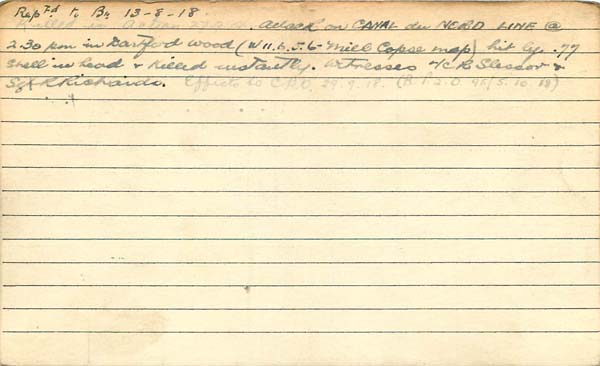 Rep'td. to Bn 13-8-18.
Killed in action 27.9.18. Attack on CANAL du NORD LINE @
2.30 pm in Dartford Wood (W11.b.5.6 Mill Copse map) hit by .77
shell in head & killed instantly. Witnesses L/C R Slessor &
Sgt R Richards. Effects to C.R.O. 29.9.18. (B.12.0 5.10.18)